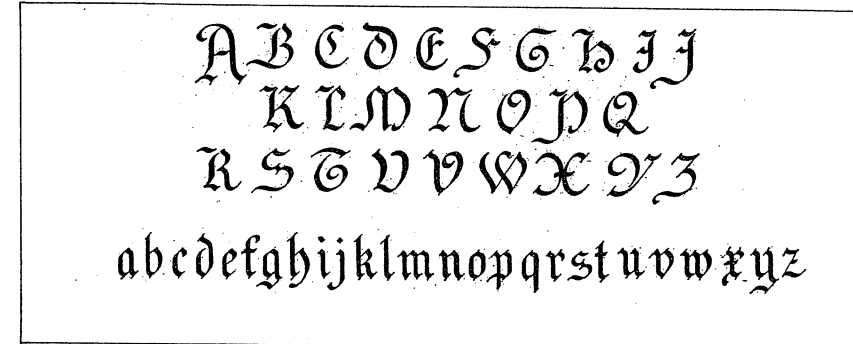 A B C D E F G H I J
K L M N O P Q
R S T U V W X Y Z
a b c d e f g h i j k l m n o p q r s t u v w x y z